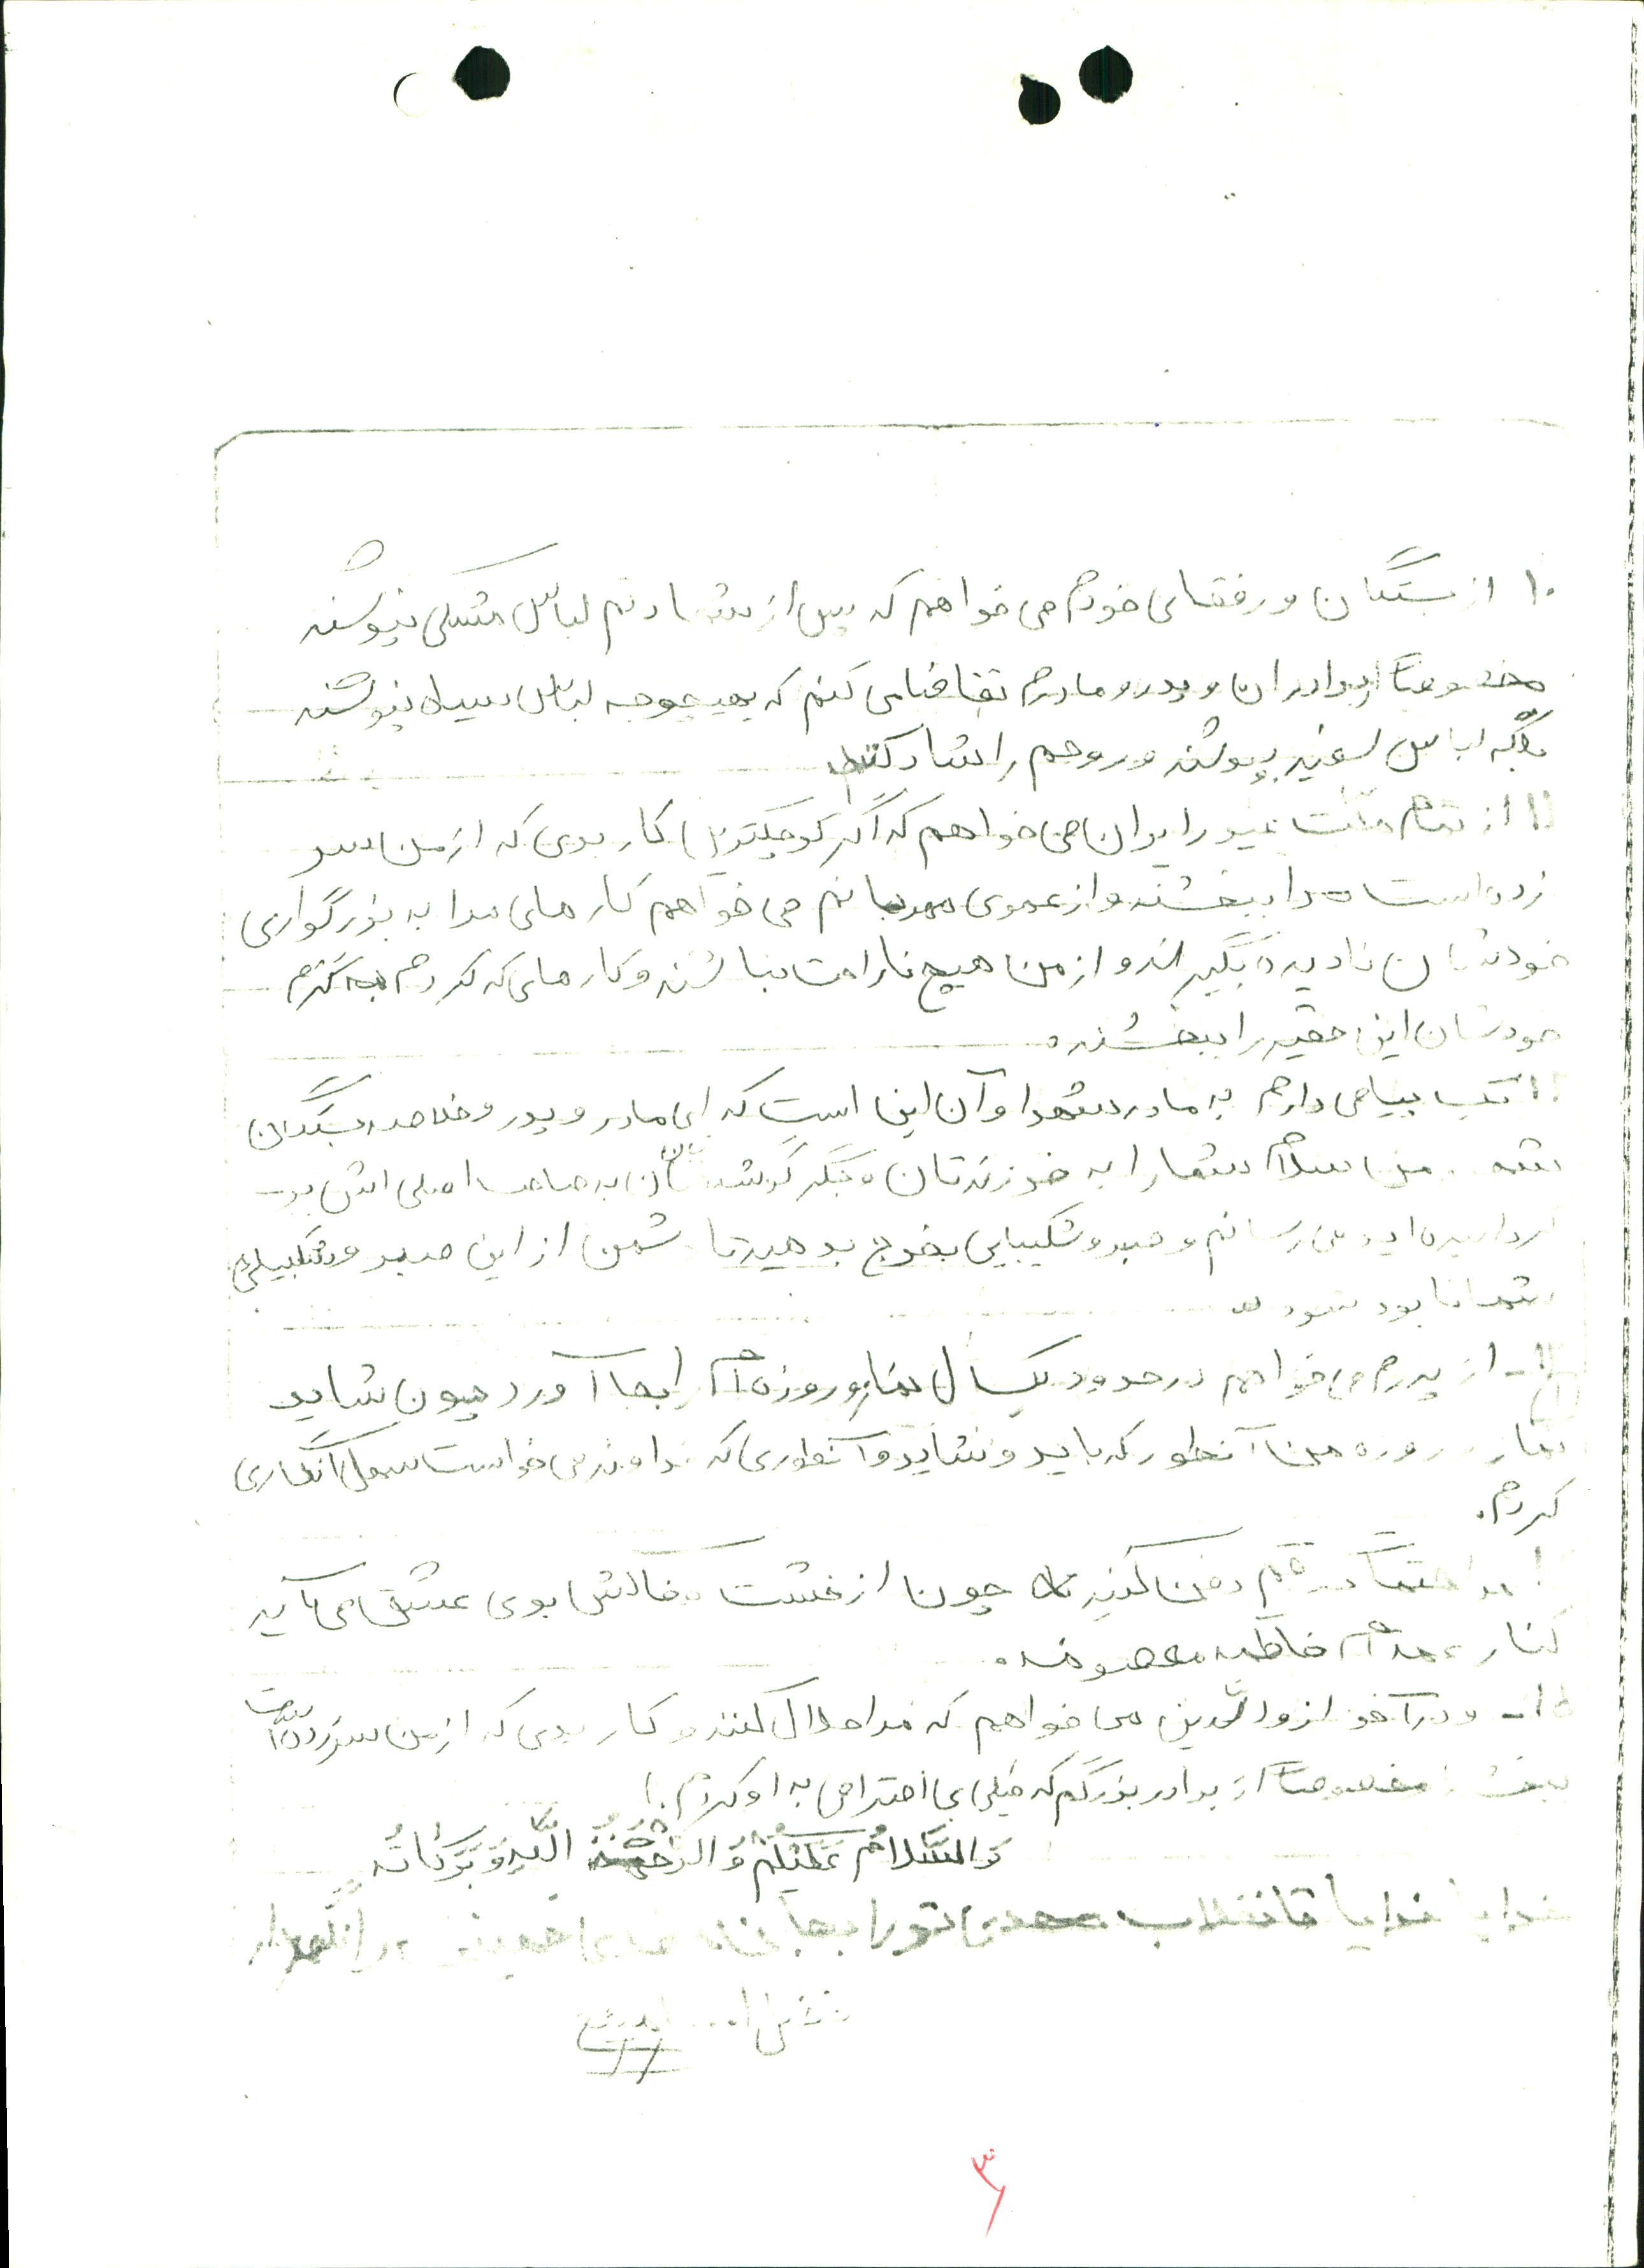 ۱۰ از بستگان و رفقای خودم می خواهم که پس از شهادتم لباس مشکی نپوشند
مخصوصاً از برادران و پدر و مادرم تقاضا می کنم که بهیچوجه لباس سیاه نپوشند
بلکه لباس سفید بپوشند و روحم را شاد کنند
۱۱ از تمام ملت غیور ایران می خواهم که اگر کوچکترین کار بدی که از من سر
زده است مرا ببخشند و از عموی مهربانم می خواهم کارهای مرا به بزرگواری
خودشان نادیده بگیرند و از من هیچ ناراحت نباشند و کارهای که کردم به کرم
خودشان این حقیر را ببخشند.
پیامی دارم به مادر شهدا و آن این است که ای مادر و پدر و خلاصه بستگان
من سلام شما را به فرزندتان و جگر گوشه تان به صاحب اصلی اش بر
می رسانم و صبر و شکیبایی بخرج بدهید تا دشمن از این صبر و شکیبایی
شما نابود شود
از پدرم می خواهم در حدود یکسال نماز و روزه ام را بجا آورد چون شاید
نماز روزه من آنطور که باید و نشاید و آنطوری که خداوند می خواست سهل انگاری
کردم.
مرا حتماً در قم دفن کنید چون از خشت و خاکش بوی عشق می آید
کنار عمه ام فاطمه معصومه.
۱۵- و در آخر از والدین می خواهم که مرا حلال کنند و کار بدی که از من سر زده است
ببخشند مخصوصاً از برادر بزرگم که خیلی بی احترامی به او کردم.
وَالسَّلامُ عَلَیْکُمْ وَ الرَحْمَةُ اللَّهِ وَ بَرَکَاتُه
خدایا خدایا تا انقلاب مهدی تو را بجان
۳۶